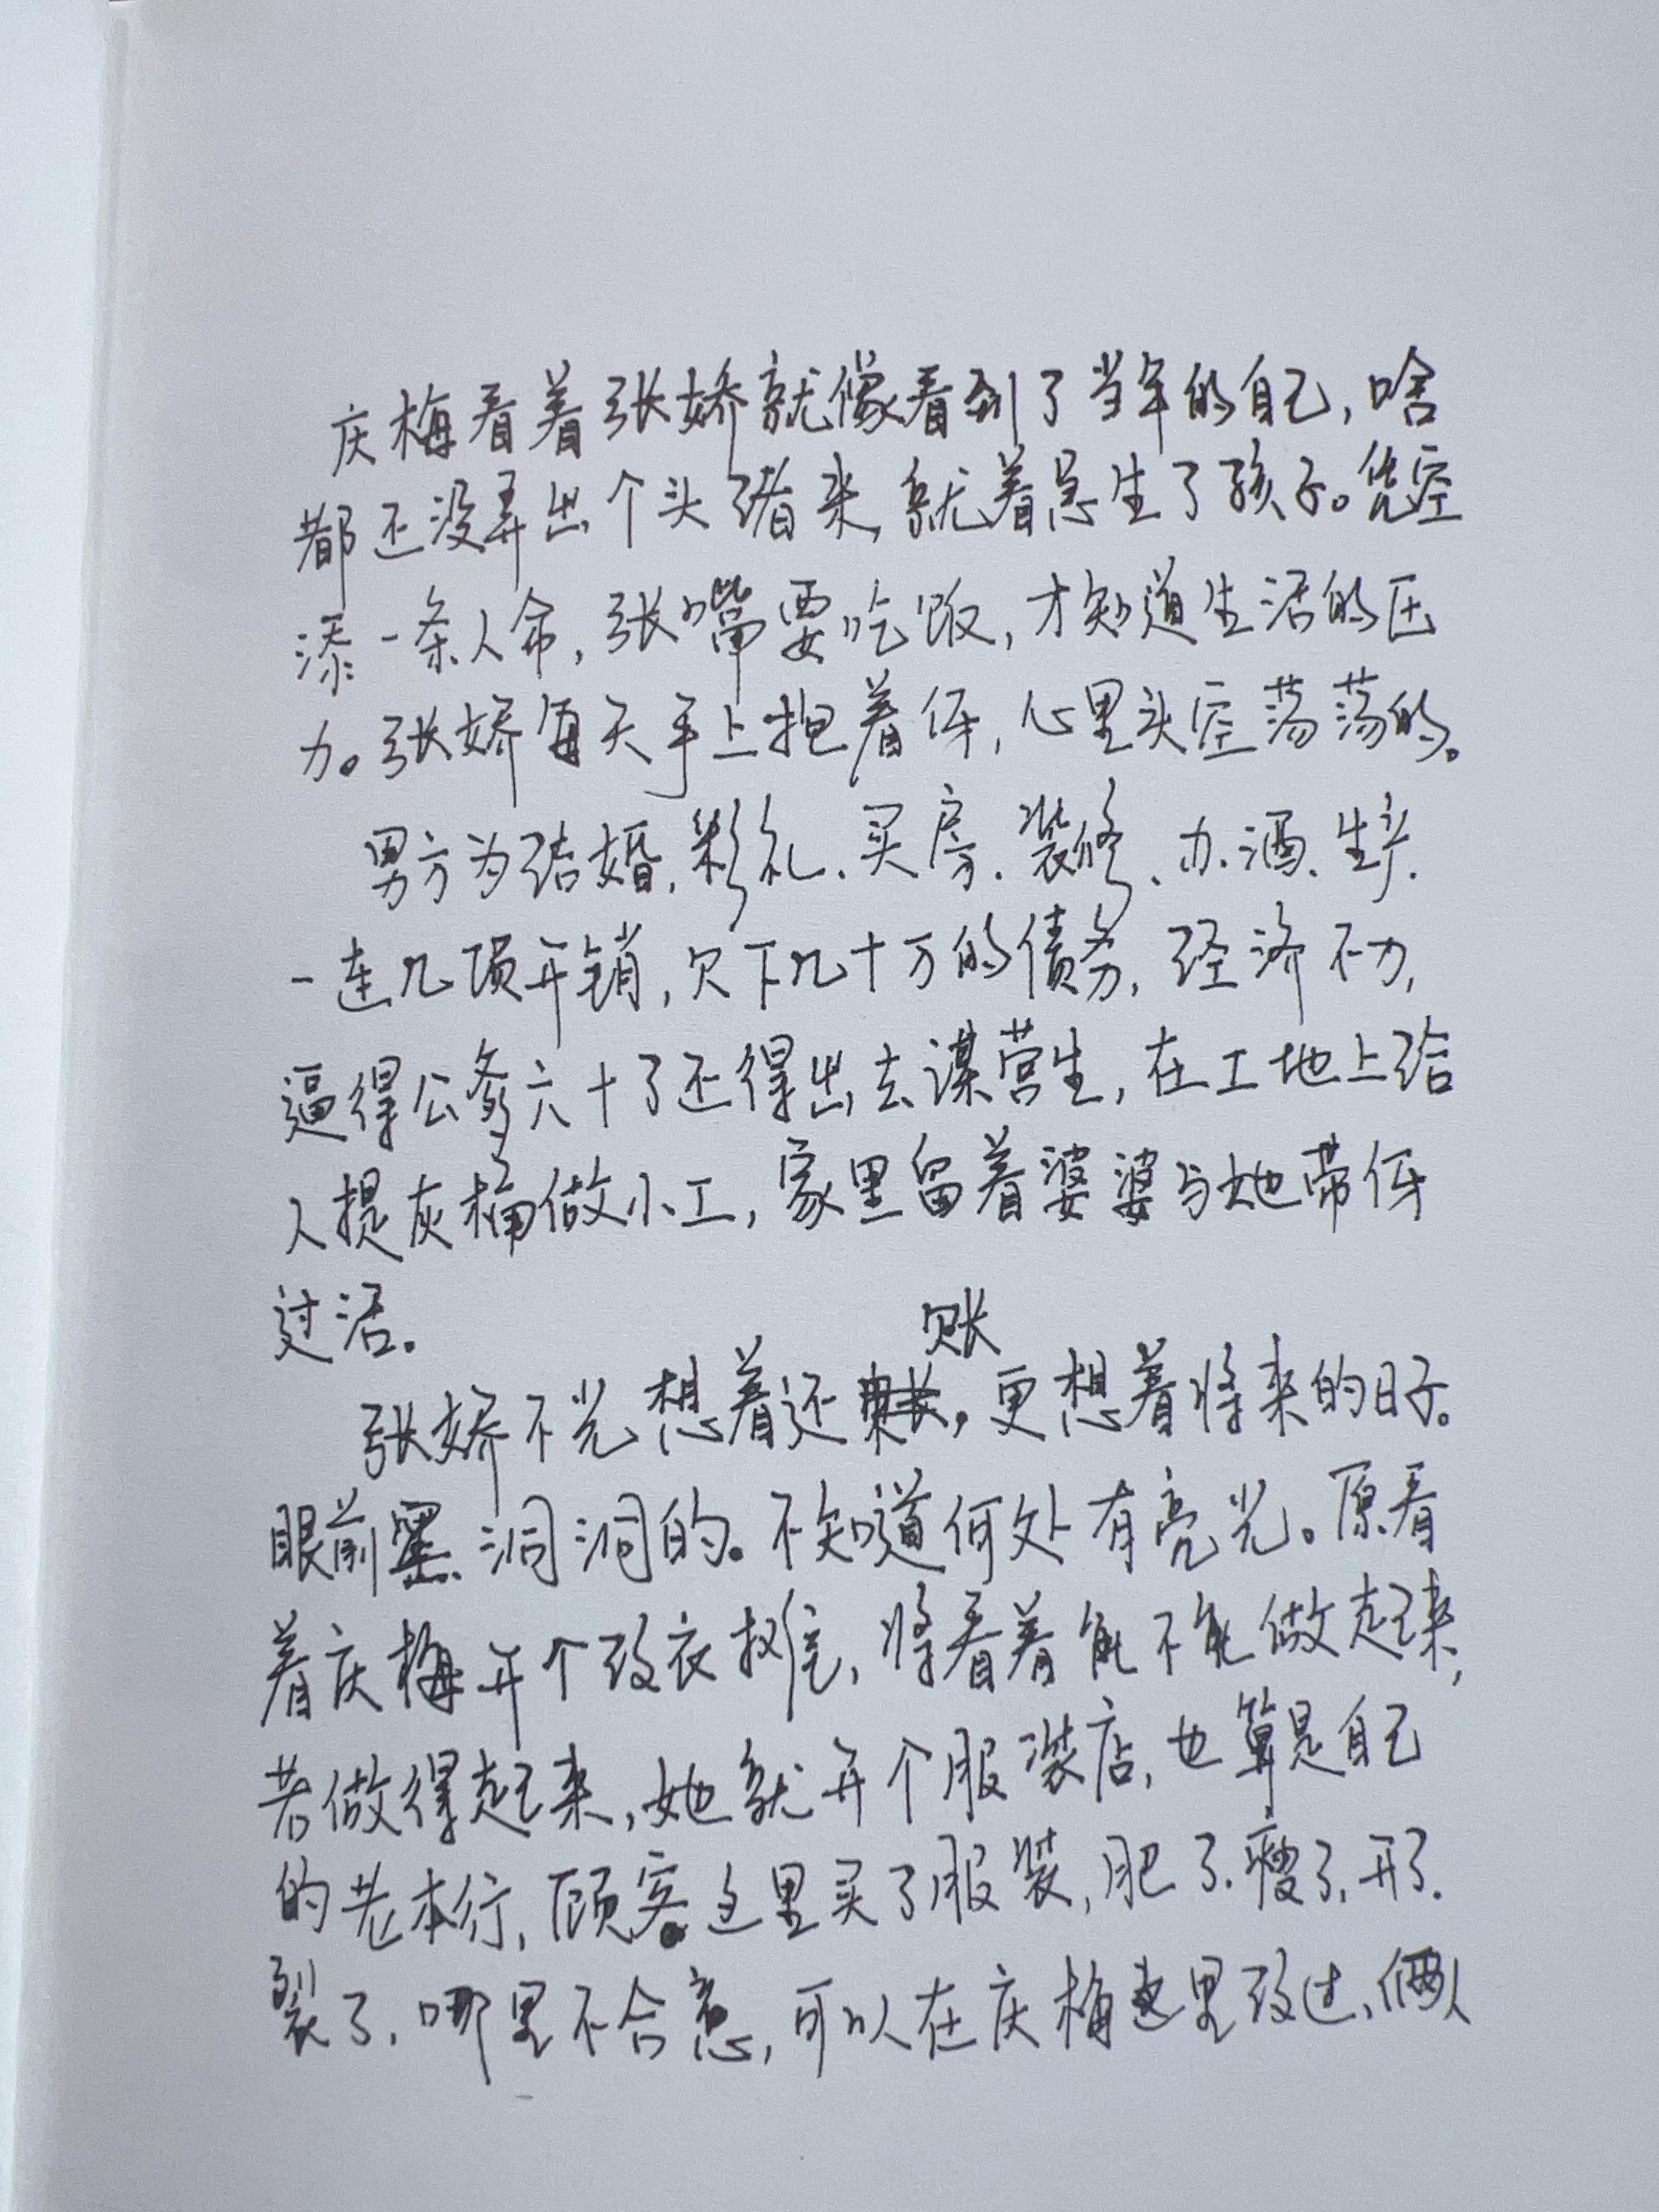 庆梅看着张娇就像看到了当年的自己,啥
都还没弄出个头绪来,就着急生了孩子。凭空
添一条人命,张嘴要吃饭,才知道生活的压
力。张娇每天手上抱着伢,心里头空荡荡的。
男方为结婚,彩礼、买房、装修、办酒、生产、
一连几项开销,欠下几十万的债务,经济不力,
逼得公爹六十了还得出去谋营生,在工地上给
人提灰桶做小工,家里留着婆婆与她带伢
过活。
欠账
张娇不光想着还,更想着将来的日子。
眼前黑洞洞的。不知道何处有亮光。原看
着庆梅开个改衣摊,将看着能不能做起来,
若做得起来,她就开个服装店,也算是自己
的老本行,顾客这里买了服装,肥了、瘦了、开了、
裂了、哪里不合意,可以在庆梅这里改过、俩人